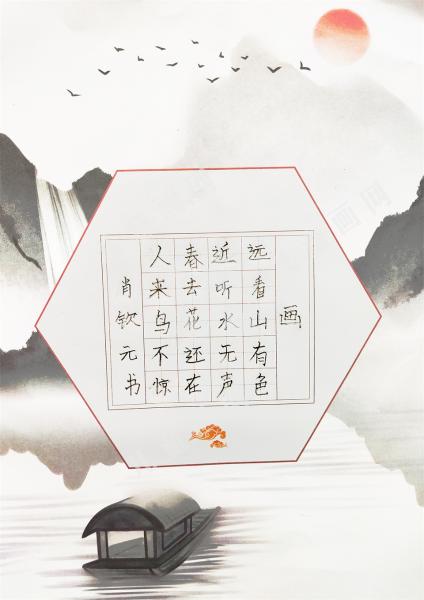 画
远看山有色
近听水无声
春去花还在
人来鸟不惊
肖钦元书